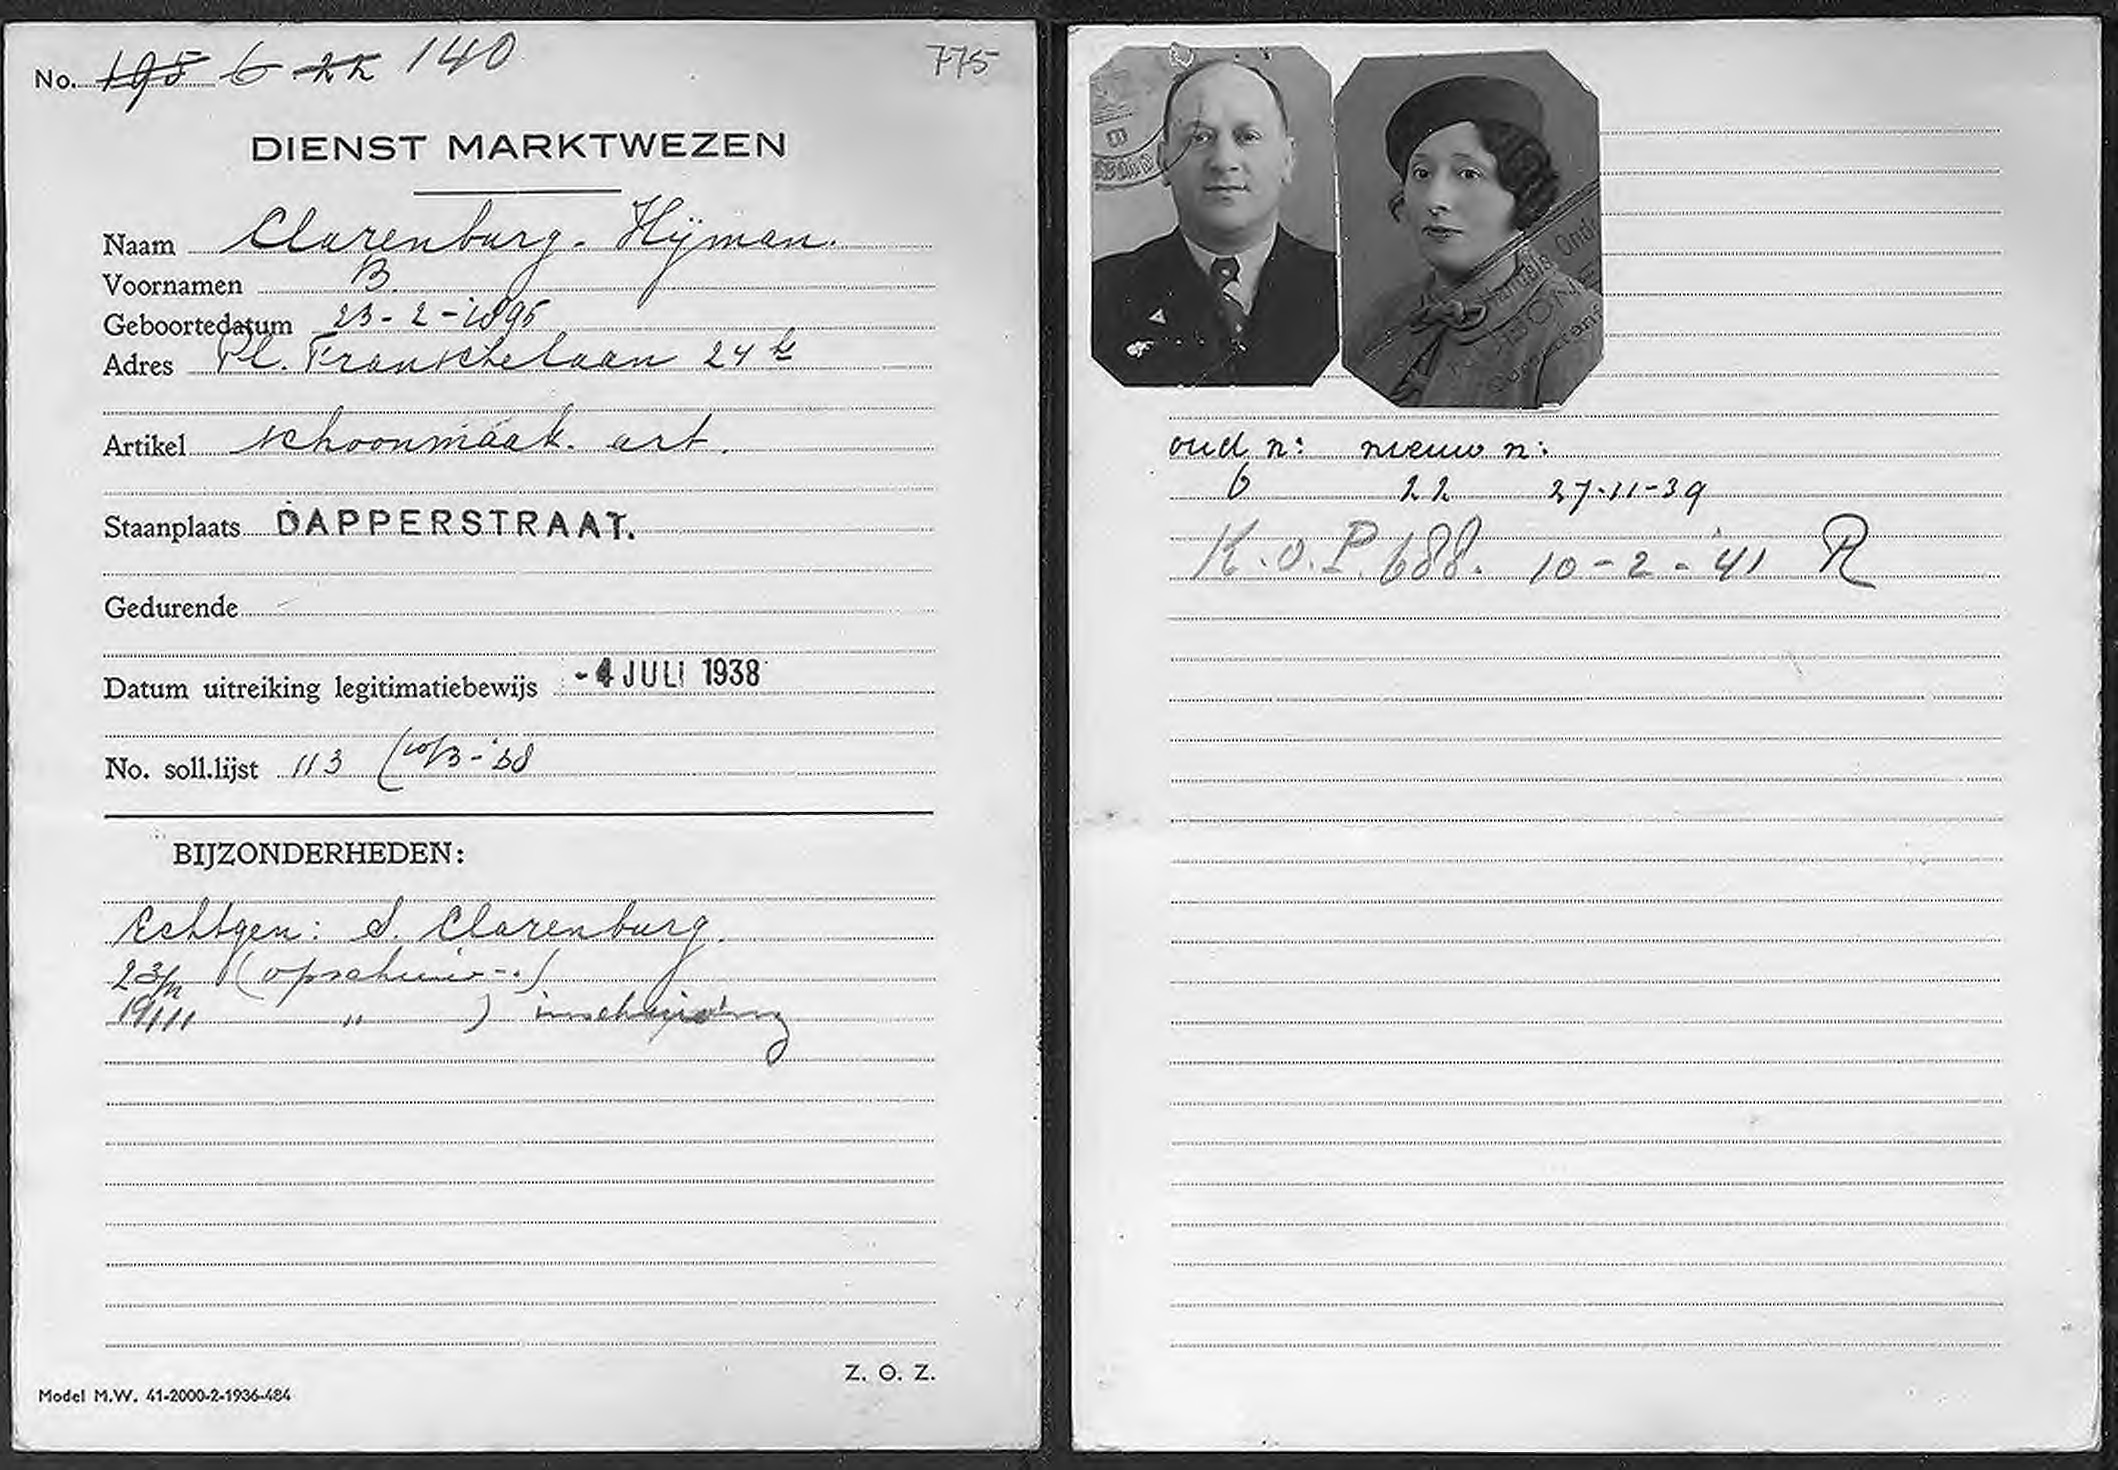 No. 195 6 22 140
775
DIENST MARKTWEZEN
Naam Clarenburg-Hijman.
Voornamen B.
Geboortedatum 23-2-1895
Adres Pl. Franschelaan 24
Artikel schoonmaak. art.
Staanplaats DAPPERSTRAAT.
Gedurende
Datum uitreiking legitimatiebewijs -4 JULI 1938
No. soll.lijst 113 (10/3-'38
BIJZONDERHEDEN:
Echtgen: S. Clarenburg.
Z. O. Z.
Model M.W. 41-2000-2-1936-484
oud n: nieuw n:
6 22 27-11-39
K.o.P. 688. 10-2-'41 R